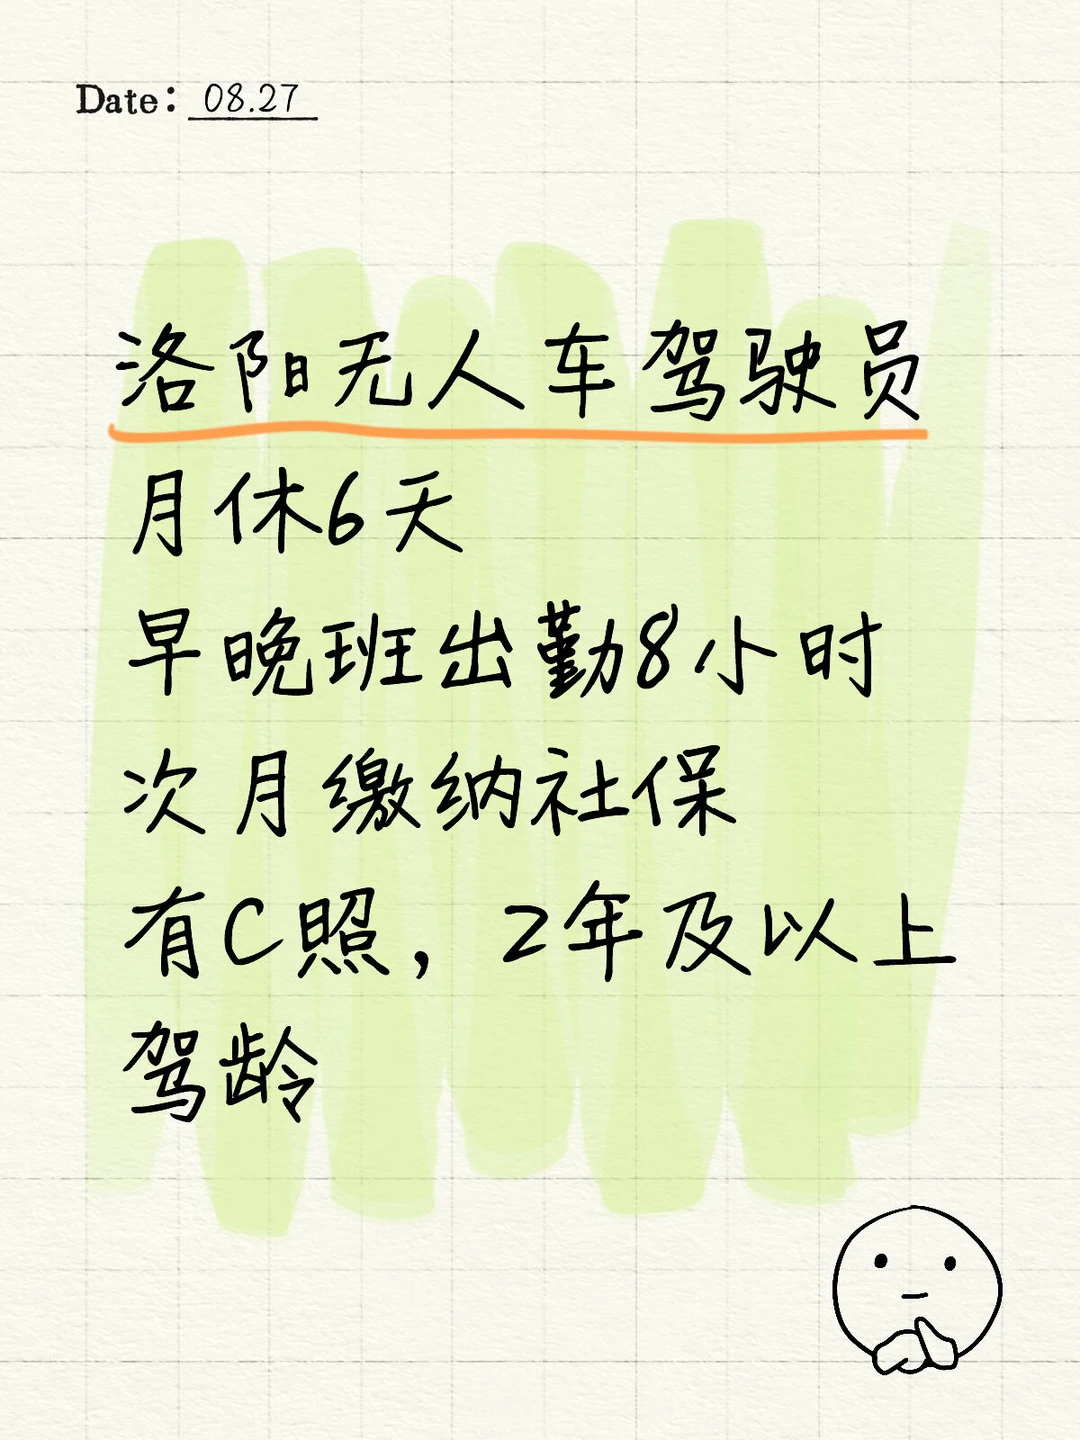 Date: 08.27
洛阳无人车驾驶员
月休6天
早晚班出勤8小时
次月缴纳社保
有C照，2年及以上
驾龄